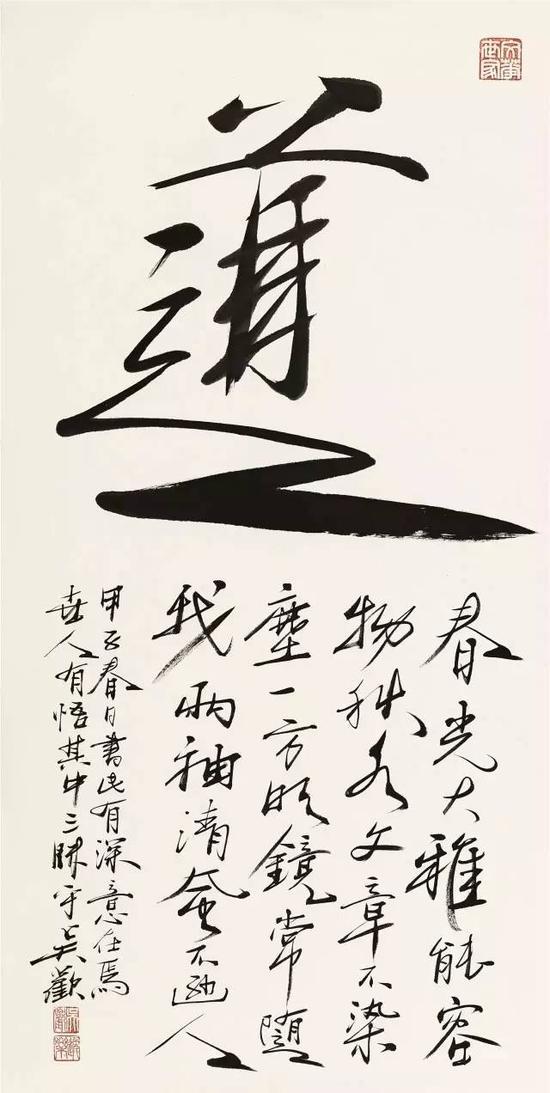 道
春光大雅能容
物秋水文章不染
塵一方明鏡常隨
我兩袖清風不遜人
甲午春日書此有深意在焉
世人有悟其中三昧乎吴歡